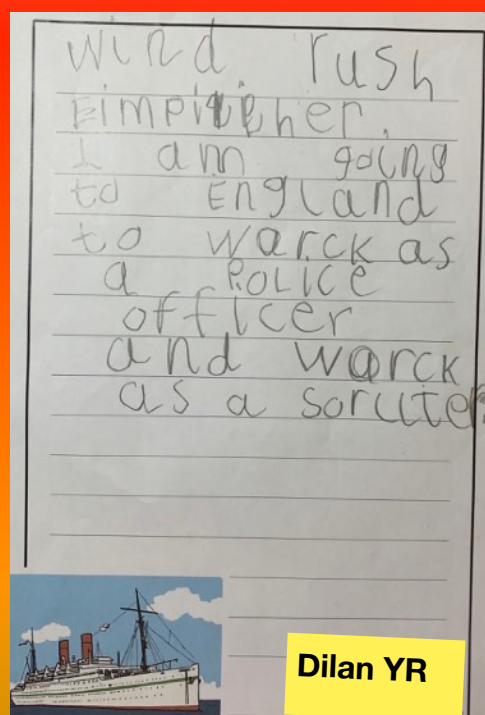 wind. rush
Eimpireher.
I am going
to England
to warck as
a Police
officer
and warck
as a soruter.
Dilan YR